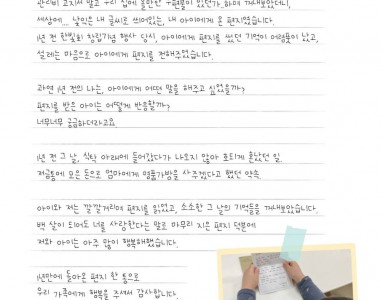 관리비 고지서 말고 우리 집에 올만한 우편물이 있던가, 하며 꺼내보았더니,
세상에... 낯익은 내 글씨로 쓰여있는, 내 아이에게 온 편지였습니다.
1년 전 한빛회 창립기념 행사 당시, 아이에게 편지를 썼던 기억이 어렴풋이 났고,
설레는 마음으로 아이에게 편지를 전해주었습니다.
과연 1년 전의 나는, 아이에게 어떤 말을 해주고 싶었을까?
편지를 받은 아이는 어떻게 반응할까?
너무너무 궁금하더라고요.
1년 전 그 날, 식탁 아래에 들어갔다가 나오지 않아 호되게 혼났던 일.
저금통에 모은 돈으로 엄마에게 명품가방을 사주겠다고 했던 약속.
아이와 저는 깔깔거리며 편지를 읽었고, 소소한 그 날의 기억들을 꺼내보았습니다.
백 살이 되어도 너를 사랑한다는 말로 마무리 지은 편지 덕분에
저와 아이는 아주 많이 행복해했습니다.
1년만에 돌아온 편지 한 통으로
우리 가족에게 행복을 주셔서 감사합니다.